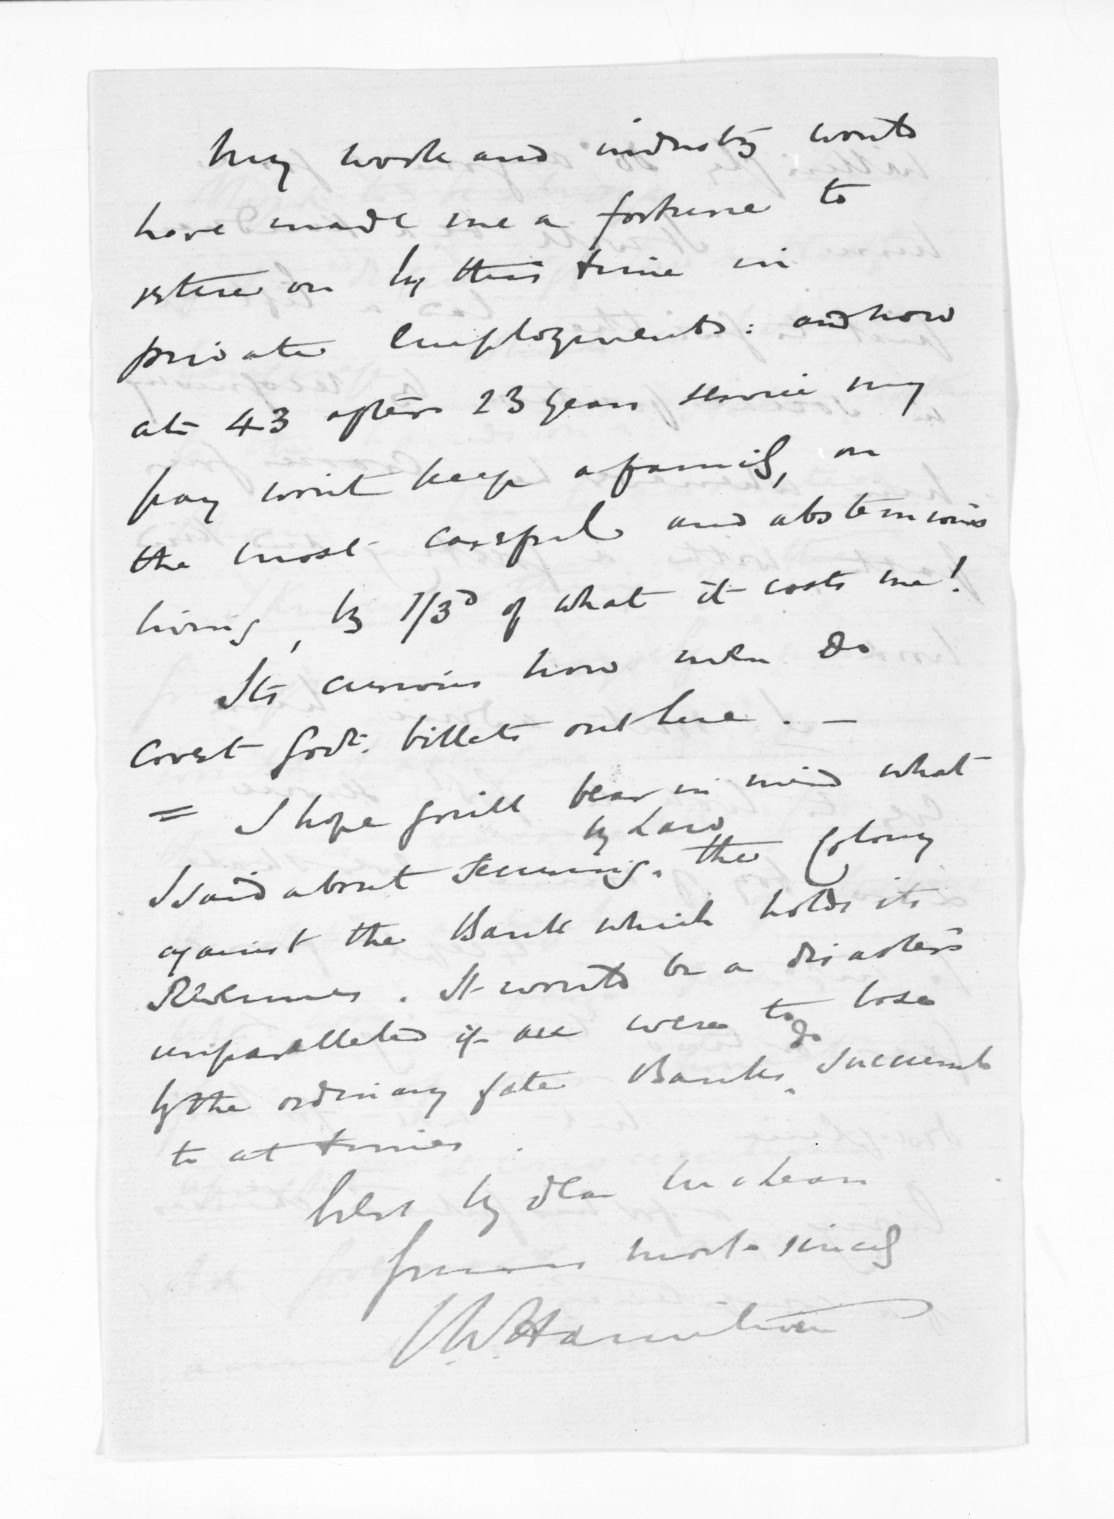 My work and industry would
have made me a fortune to
retire on by this time in
private employments: and now
at 43 after 23 years service my
pay wont keep a family, on
the most careful and abstemious
living, by 1/3d of what it costs me!
Its curious how men do
covet Govt. billets out here. —
= I hope you'll bear in mind what
I said about securing by Law the Colony
against the Bank which holds its
Revenues. It would be a disaster
unparalleled if all were to lose
by the ordinary fate Banks do succumb
to at times.
my dear McLean
yours most sincely
J.W. Hamilton